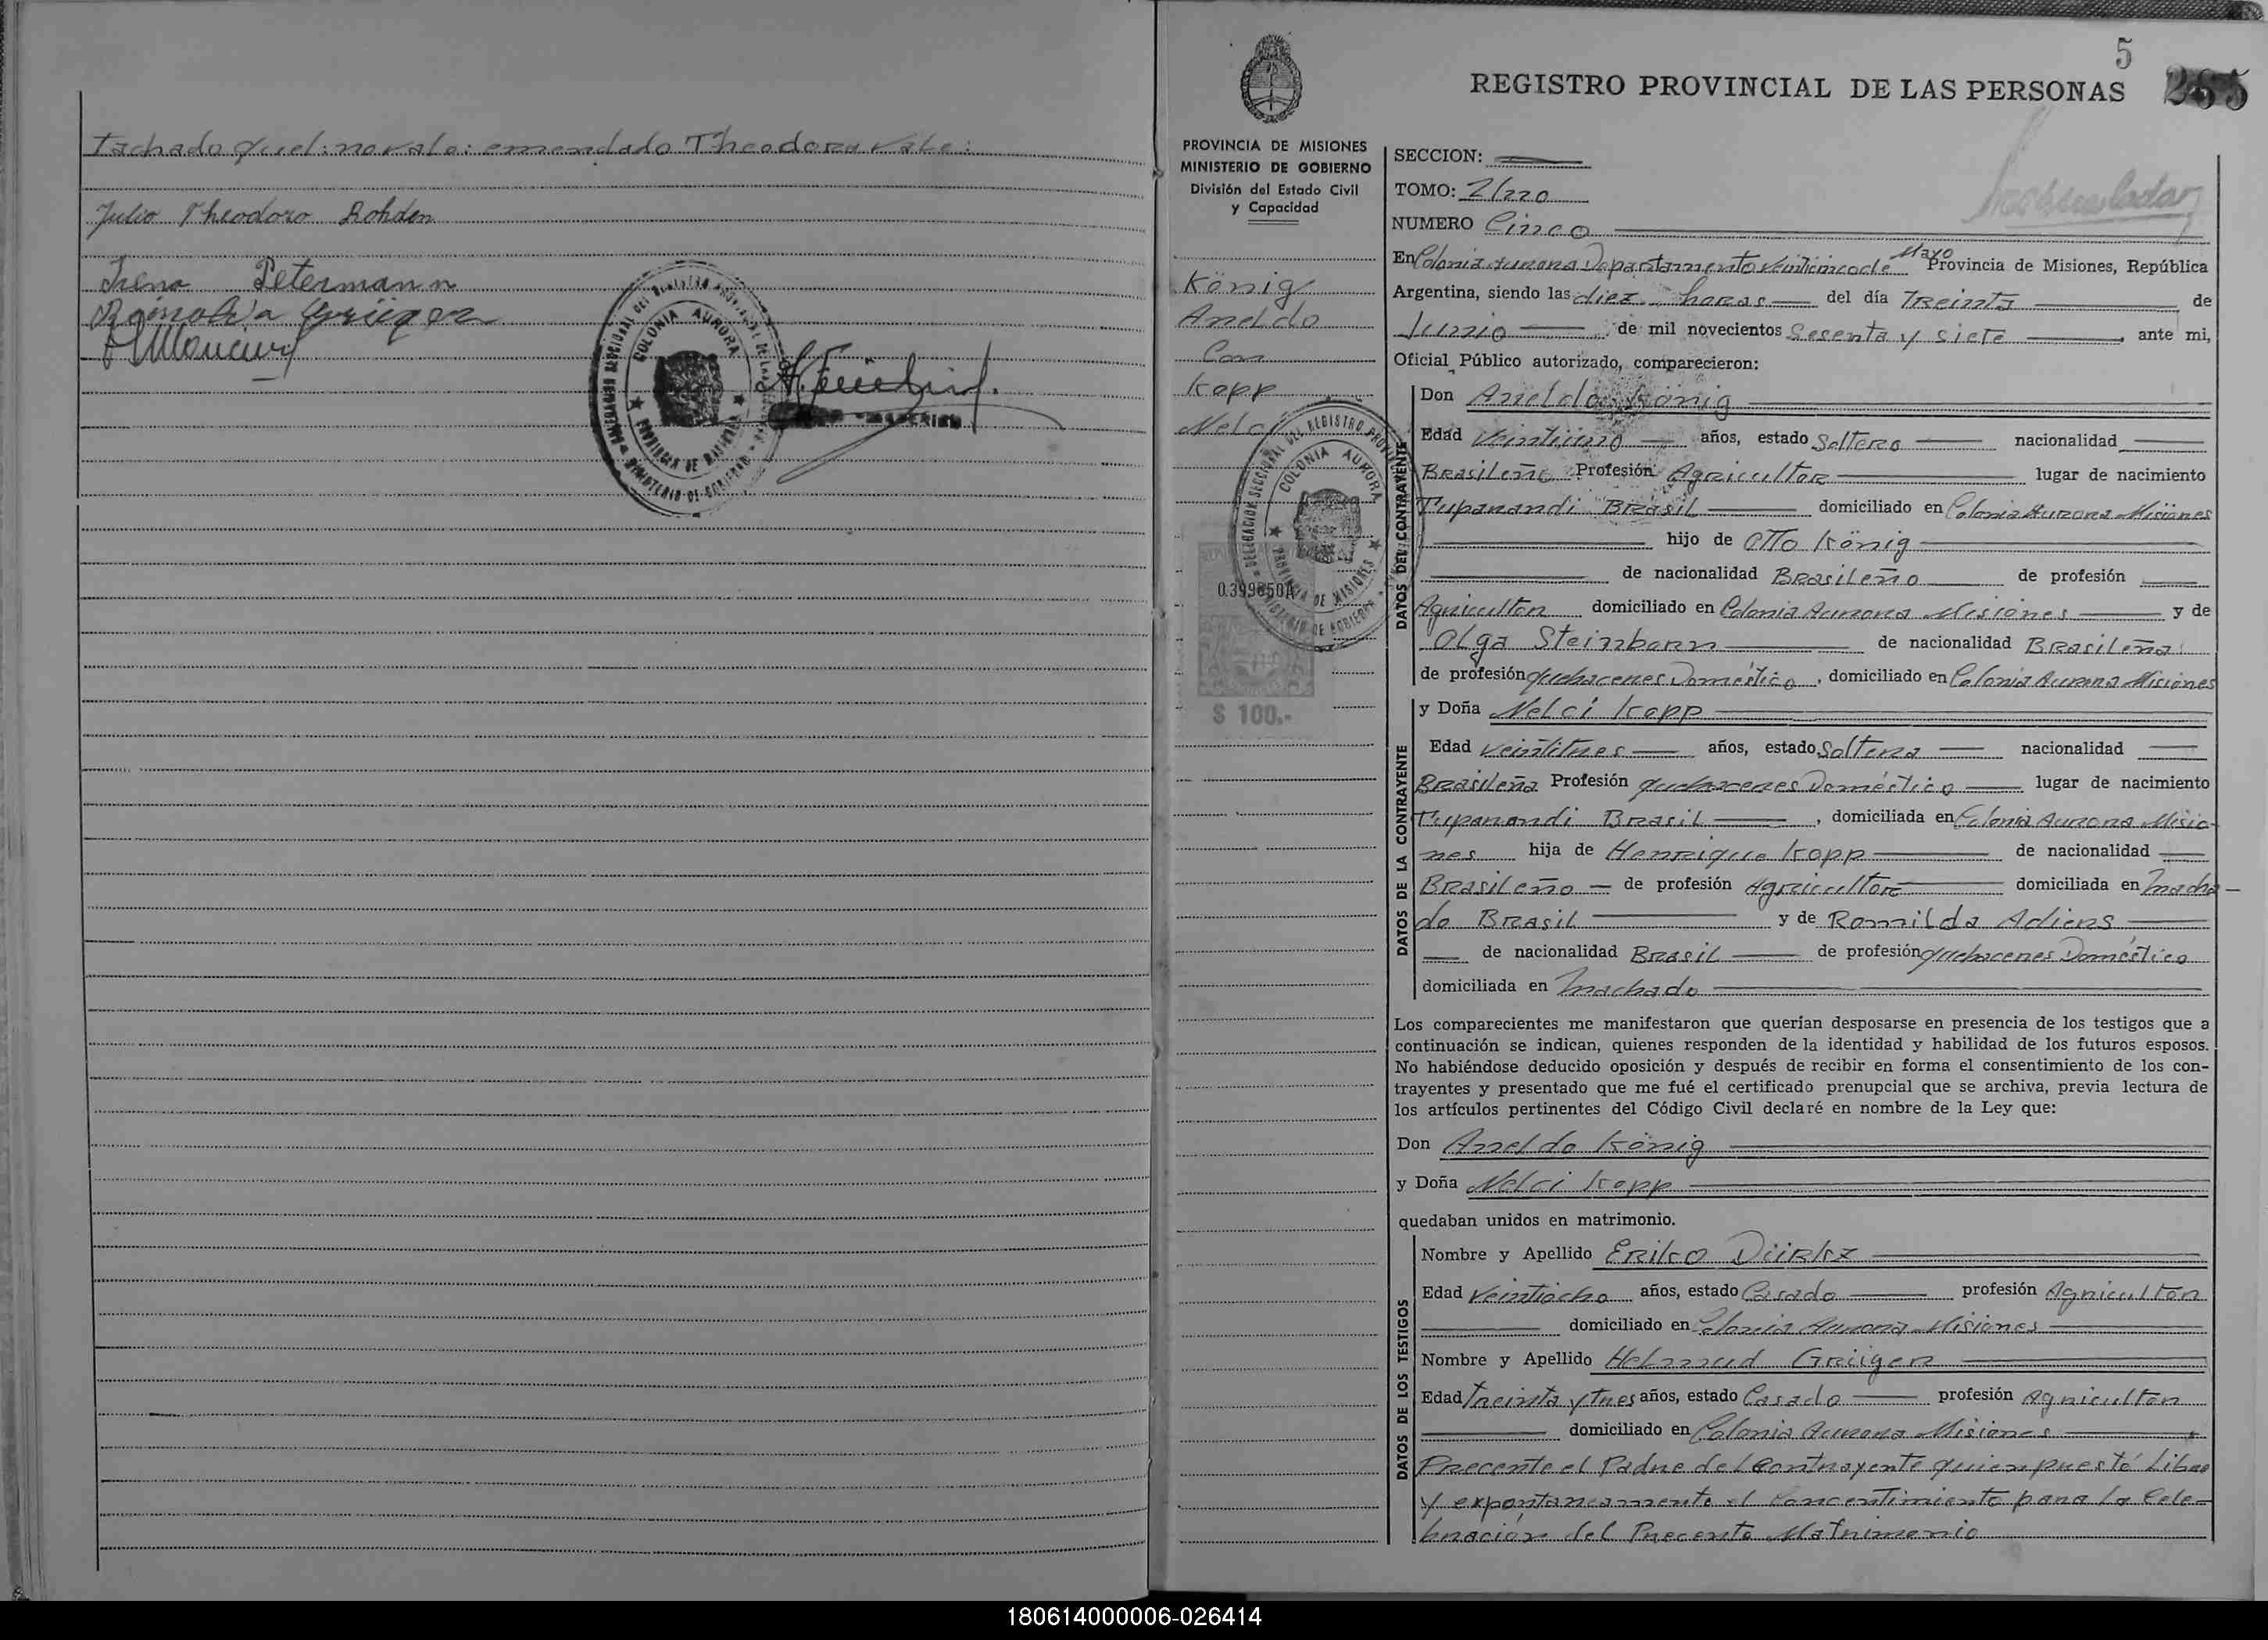 tachado quel: no vale: emendado Theodoro vale:
Julio Theodoro Rohden
Irena Petermann
COLONIA AURORA
PROVINCIA DE MISIONES
5
REGISTRO PROVINCIAL DE LAS PERSONAS 265
PROVINCIA DE MISIONES
MINISTERIO DE GOBIERNO
División del Estado Civil
y Capacidad
König
Aneldo
Con
Kopp
Nelci
DELEGACION SECCIONAL DEL REGISTRO
COLONIA AURORA
PROVINCIA DE MISIONES
0.399850A
$ 100.-
SECCION:
TOMO: 2/220
NUMERO Cinco
En Colonia Aurora Departamento Veinticinco de Mayo Provincia de Misiones, República
Argentina, siendo las diez horas del día Treinta de
Junio de mil novecientos Sesenta y siete ante mi,
Oficial Público autorizado, comparecieron:
DATOS DEL CONTRAYENTE
Don Aneldo König
Edad Veintiuno años, estado Soltero nacionalidad
Brasileño Profesión Agricultor lugar de nacimiento
Tupanandi Brasil domiciliado en Colonia Aurora Misiones
hijo de Otto König
de nacionalidad Brasileño de profesión
Agricultor domiciliado en Colonia Aurora Misiones y de
Olga Steinborn de nacionalidad Brasileña
de profesión quehaceres Doméstico, domiciliado en Colonia Aurora Misiones
DATOS DE LA CONTRAYENTE
y Doña Nelci Kopp
Edad veintitres años, estado Soltera nacionalidad
Brasileña Profesión quehaceres Doméstico lugar de nacimiento
Tupanandi Brasil, domiciliada en Colonia Aurora Misio-
nes hija de Henrique Kopp de nacionalidad
Brasileño de profesión Agricultor domiciliada en Macha-
do Brasil y de Romilda Adiens
de nacionalidad Brasil de profesión quehaceres Doméstico
domiciliada en Machado
Los comparecientes me manifestaron que querían desposarse en presencia de los testigos que a
continuación se indican, quienes responden de la identidad y habilidad de los futuros esposos.
No habiéndose deducido oposición y después de recibir en forma el consentimiento de los con-
trayentes y presentado que me fué el certificado prenupcial que se archiva, previa lectura de
los artículos pertinentes del Código Civil declaré en nombre de la Ley que:
Don Aneldo König
y Doña Nelci Kopp
quedaban unidos en matrimonio.
DATOS DE LOS TESTIGOS
Nombre y Apellido Eriko Dürks
Edad Veintiocho años, estado Casado profesión Agricultor
domiciliado en Colonia Aurora Misiones
Nombre y Apellido Helmud Grügen
Edad treinta y tres años, estado Casado profesión Agricultor
domiciliado en Colonia Aurora Misiones
Precente el Padre del Contrayente quien puestó Libre
y expontaneamente el Concentimiento para la Cele-
bración del Precente Matrimonio
180614000006-026414